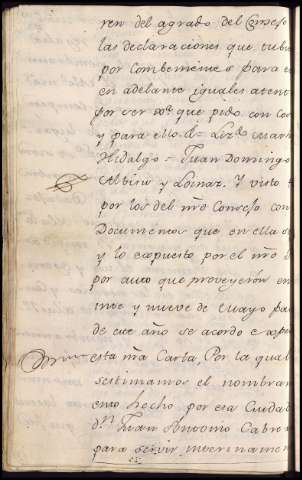 ren del agrado del Consejo
las declaraciones que tubie
por combeniente o para
en adelante iguales atent
por ser xxª que pido con
y para ello &ª Lizdo Mar
Hidalgo = Juan Domingo
Albisu y Loinaz. Y visto
por los del nro Consejo con
Documentos que en ella
y lo expuesto por el nro
por auto que proveyeron en
inte y nueve de Mayo pa
de este año se acordo
esta nra Carta, Por la qual
estimamos el nombram
ento hecho, por esa Ciudad
dn Juan Antonio Cabre
para servir interinamen